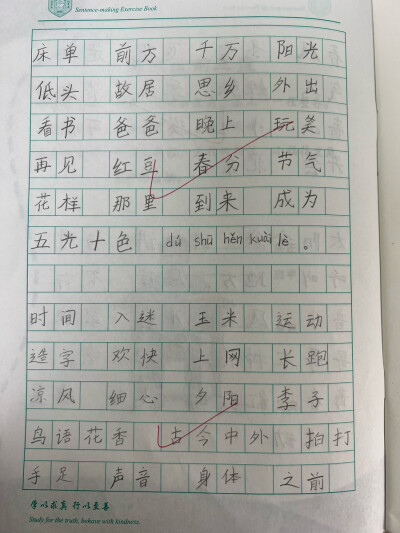 Sentence-making Exercise Book
床单 前方 千万 阳光
低头 故居 思乡 外出
看书 爸爸 晚上 玩笑
再见 红豆 春分 节气
花样 那里 到来 成为
五光十色 dú shū hěn kuài lè 。
时间 入迷 玉米 运动
造字 欢快 上网 长跑
凉风 细心 夕阳 李子
鸟语花香 古今中外 拍打
手足 声音 身体 之前
学以求真 行以至善
Study for the truth, behave with kindness.